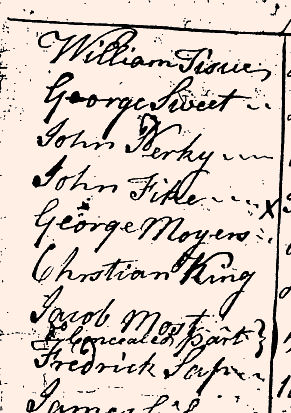 William Tissue
George Sweet
John D Yerky
John Fike
George Moyers
Chrstian King
Jacob Most
Concealed part
Fredrick
James